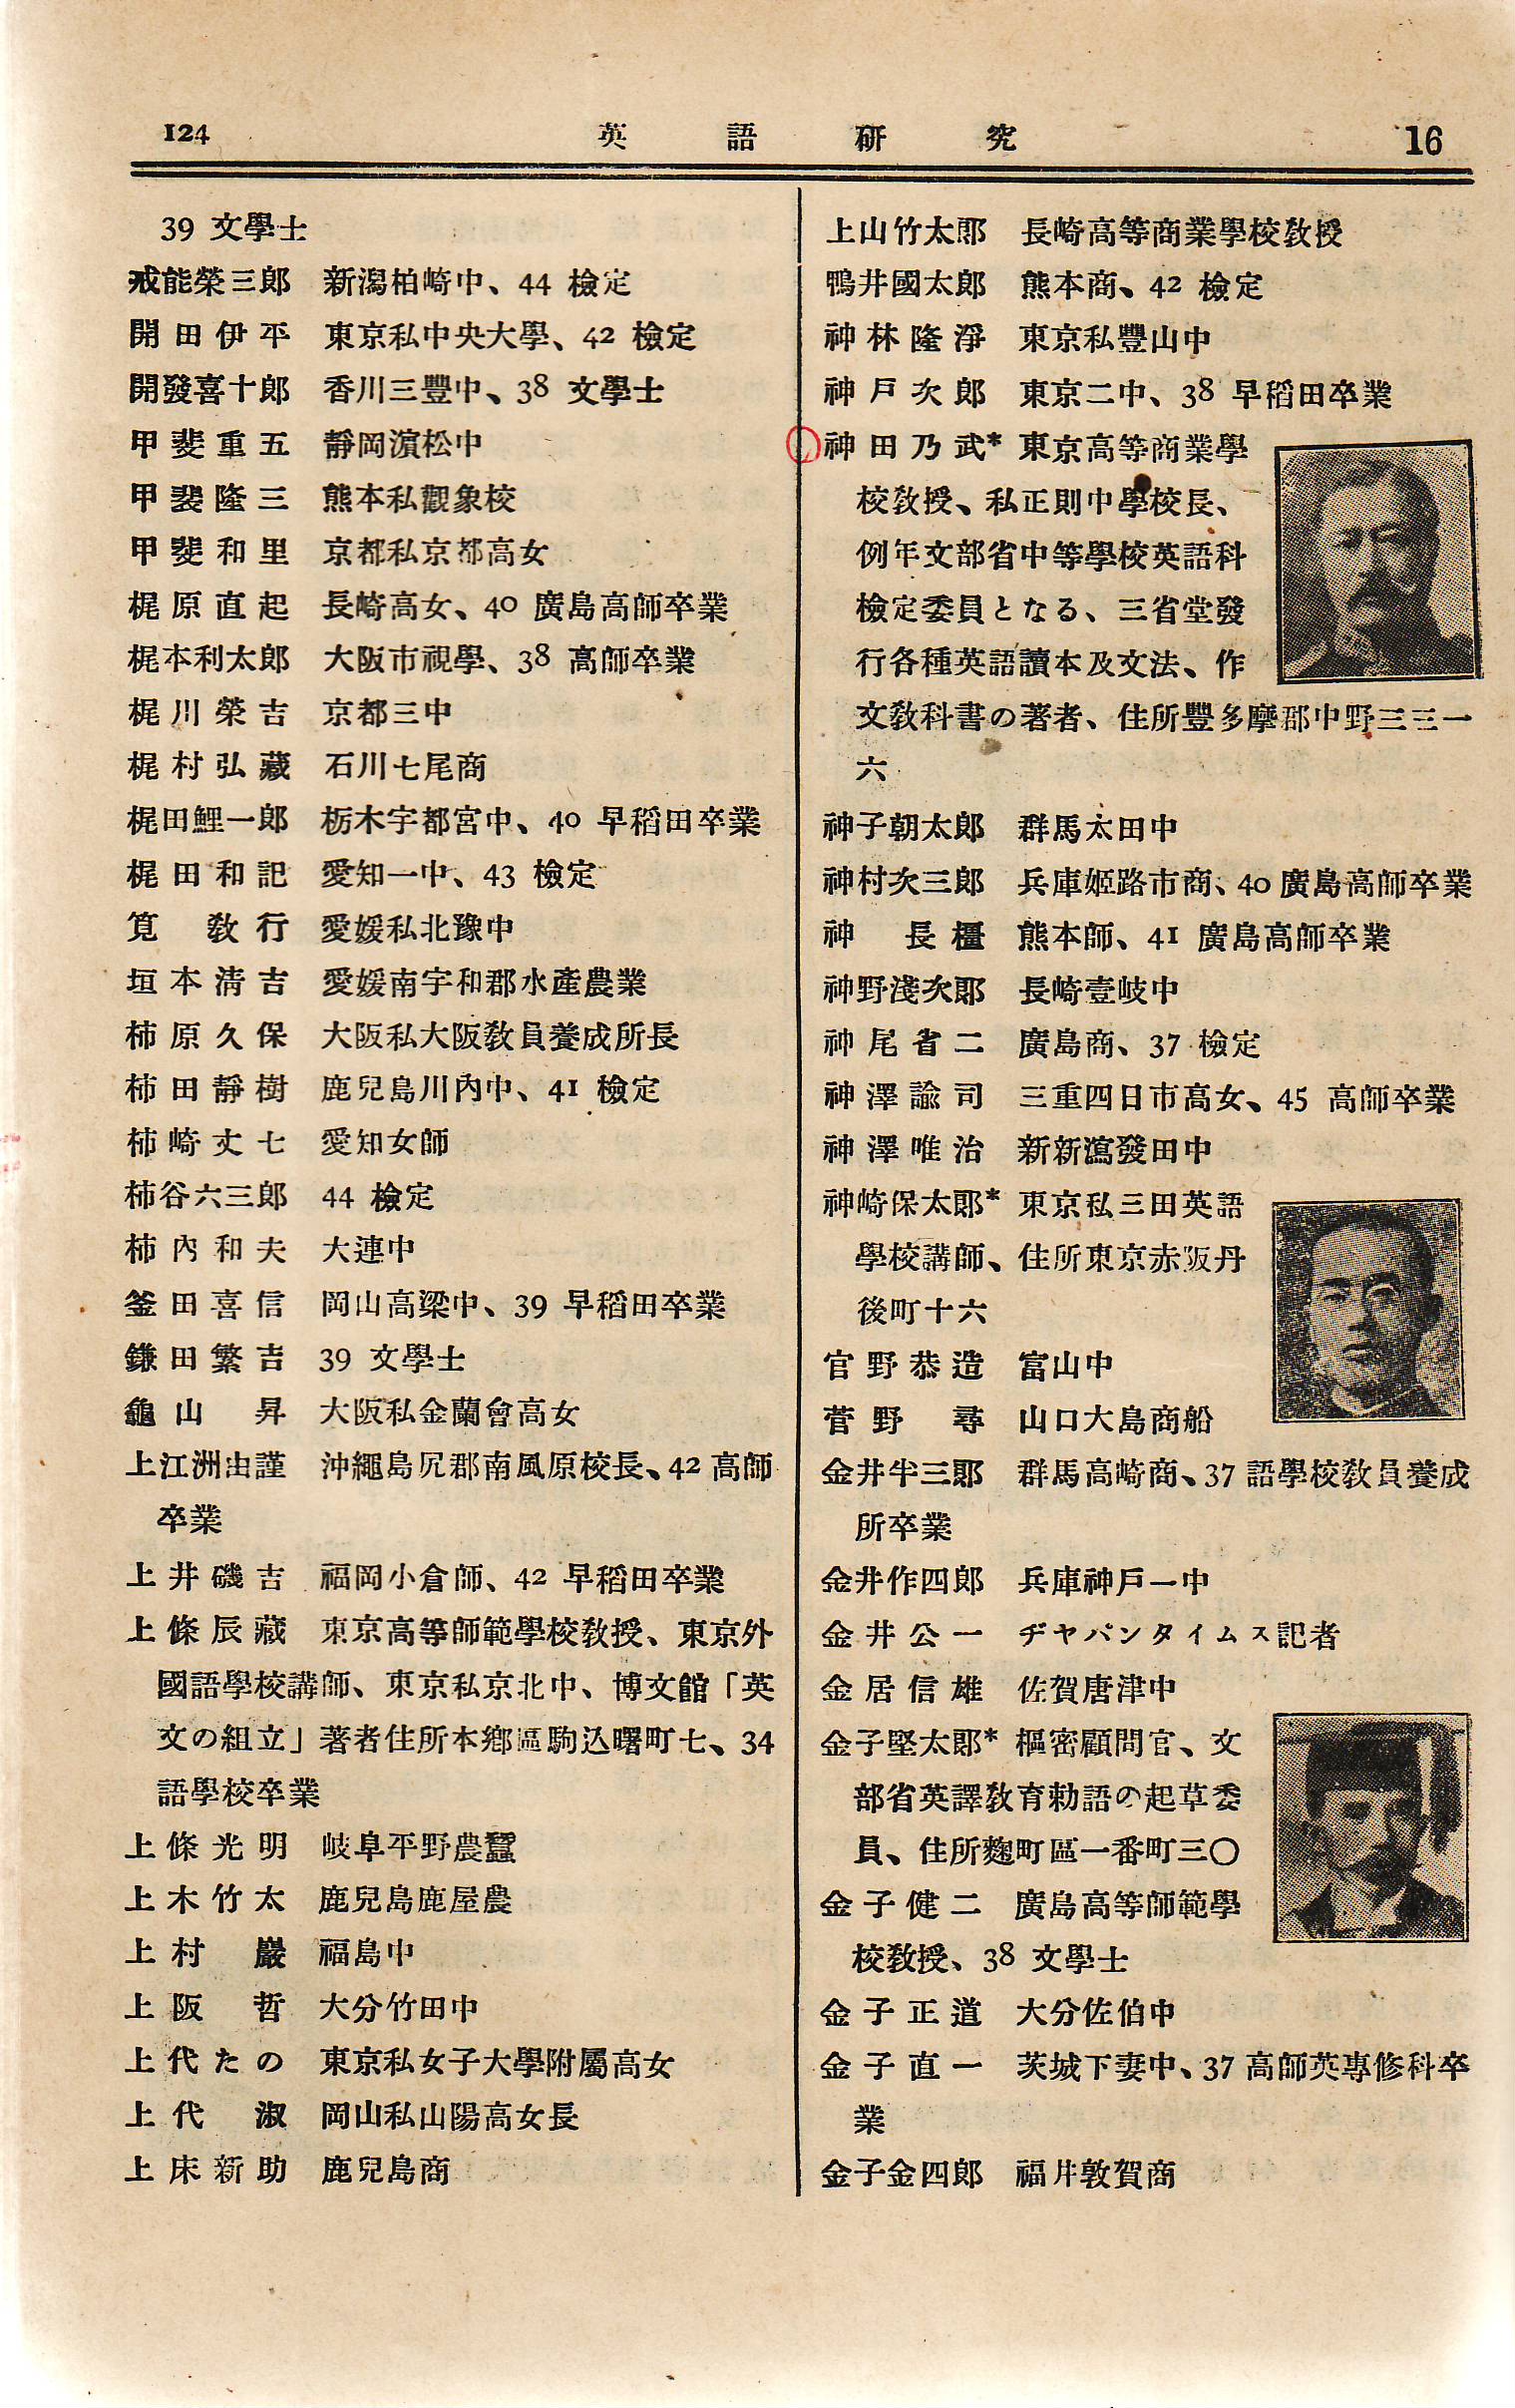 124 英語研究 16
39 文學士
戒能榮三郎 新潟柏崎中、44 檢定
開田伊平 東京私中央大學、42 檢定
開發喜十郎 香川三豐中、38 文學士
甲斐重五 靜岡濱松中
甲斐隆三 熊本私觀象校
甲斐和里 京都私京都高女
梶原直起 長崎高女、40 廣島高師卒業
梶本利太郎 大阪市視學、38 高師卒業
梶川榮吉 京都三中
梶村弘藏 石川七尾商
梶田鯉一郎 栃木宇都宮中、40 早稻田卒業
梶田和記 愛知一中、43 檢定
筧敎行 愛媛私北豫中
垣本淸吉 愛媛南宇和郡水產農業
柿原久保 大阪私大阪敎員養成所長
柿田靜樹 鹿兒島川內中、41 檢定
柿崎丈七 愛知女師
柿谷六三郎 44 檢定
柿內和夫 大連中
釜田喜信 岡山高梁中、39 早稻田卒業
鎌田繁吉 39 文學士
龜山昇 大阪私金蘭會高女
上江洲由謹 沖繩島尻郡南風原校長、42 高師
卒業
上井磯吉 福岡小倉師、42 早稻田卒業
上條辰藏 東京高等師範學校敎授、東京外
國語學校講師、東京私京北中、博文館「英
文の組立」著者住所本鄕區駒込曙町七、34
語學校卒業
上條光明 岐阜平野農蠶
上木竹太 鹿兒島鹿屋農
上村巖 福島中
上阪哲 大分竹田中
上代たの 東京私女子大學附屬高女
上代淑 岡山私山陽高女長
上床新助 鹿兒島商
上山竹太郎 長崎高等商業學校敎授
鴨井國太郎 熊本商、42 檢定
神林隆淨 東京私豐山中
神戶次郎 東京二中、38 早稻田卒業
神田乃武* 東京高等商業學
校敎授、私正則中學校長、
例年文部省中等學校英語科
檢定委員となる、三省堂發
行各種英語讀本及文法、作
文敎科書の著者、住所豐多摩郡中野三三一
六
神子朝太郎 群馬太田中
神村次三郎 兵庫姬路市商、40 廣島高師卒業
神長橿 熊本師、41 廣島高師卒業
神野淺次郎 長崎壹岐中
神尾省二 廣島商、37 檢定
神澤諭司 三重四日市高女、45 高師卒業
神澤唯治 新新潟發田中
神崎保太郎* 東京私三田英語
學校講師、住所東京赤阪丹
後町十六
官野恭造 富山中
菅野尋 山口大島商船
金井半三郎 群馬高崎商、37 語學校敎員養成
所卒業
金井作四郎 兵庫神戶一中
金井公一 ヂヤパンタイムス記者
金居信雄 佐賀唐津中
金子堅太郎* 樞密顧問官、文
部省英譯敎育勅語の起草委
員、住所麴町區一番町三〇
金子健二 廣島高等師範學
校敎授、38 文學士
金子正道 大分佐伯中
金子直一 茨城下妻中、37 高師英專修科卒
業
金子金四郎 福井敦賀商